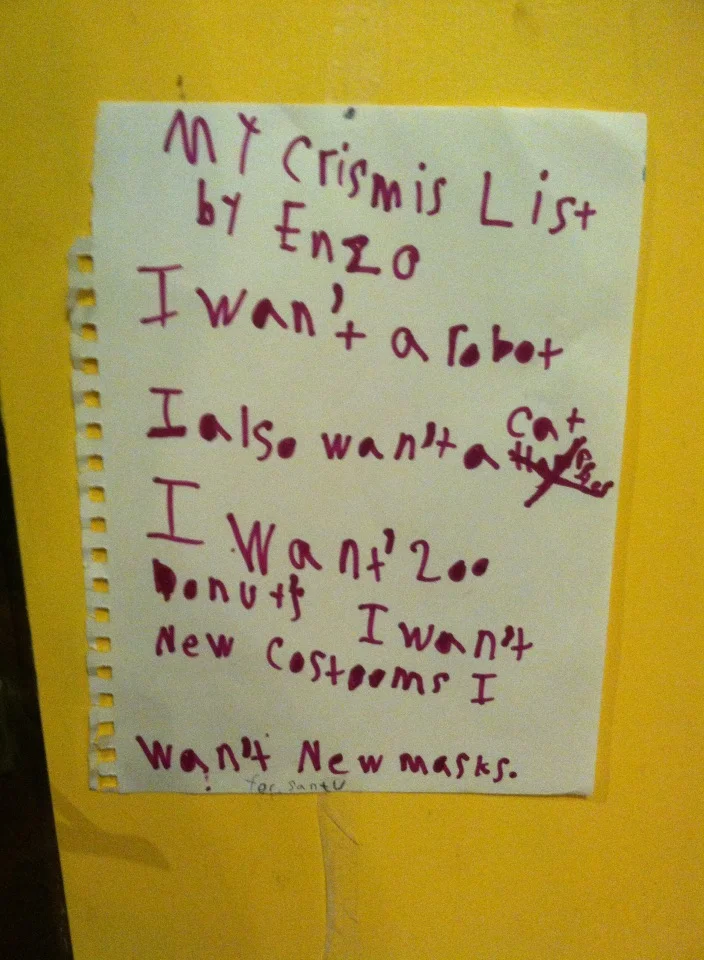 MY Crismis List
by Enzo
I wan't a robot
I also wan't a cat
I Want' 200
Donuts I wan't
New Costooms I
wan't New masks.
for santu